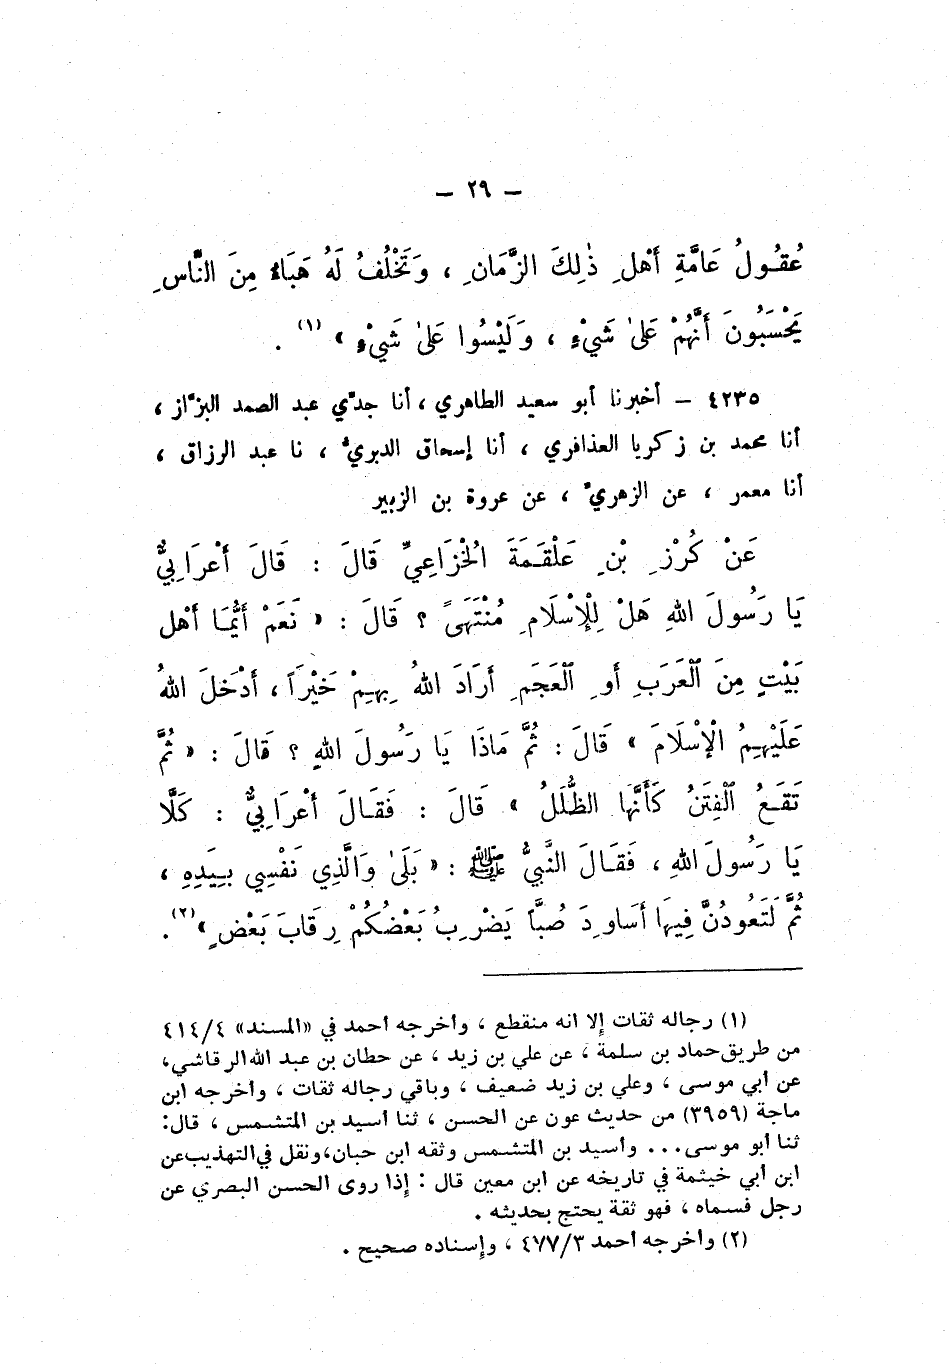 — ٢٩ —
عُقُولُ عَامَّةِ أَهْلِ ذٰلِكَ الزَّمَانِ ، وَتَخْلُفُ لَهُ هَبَاءٌ مِنَ النَّاسِ
يَحْسَبُونَ أَنَّهُمْ عَلىٰ شَيْءٍ ، وَلَيْسُوا عَلىٰ شَيْءٍ » (١) .
٤٢٣٥ — أخبرنا أبو سعيد الطاهري ، أنا جدّي عبد الصمد البزّاز ،
أنا محمد بن زكريا العذافري ، أنا إسحاق الدبريُّ ، نا عبد الرزاق ،
أنا معمر ، عن الزهريّ ، عن عروة بن الزبير
عَنْ كُرْزِ بْنِ عَلْقَمَةَ الْخُزَاعِيِّ قَالَ : قَالَ أَعْرَابِيٌّ
يَا رَسُولَ اللهِ هَلْ لِلْإِسْلَامِ مُنْتَهَىً ؟ قَالَ : « نَعَمْ أَيُّمَا أَهْل
بَيْتٍ مِنَ الْعَرَبِ أَوِ الْعَجَمِ أَرَادَ اللهُ بِهِمْ خَيْرَاً ، أَدْخَلَ اللهُ
عَلَيْهِمُ الْإِسْلَامَ » قَالَ : ثُمَّ مَاذَا يَا رَسُولَ اللهِ ؟ قَالَ : « ثُمَّ
تَقَعُ الْفِتَنُ كَأَنَّهَا الظُّلَلُ » قَالَ : فَقَالَ أَعْرَابِيٌّ : كَلَّا
يَا رَسُولَ اللهِ ، فَقَالَ النَّبِيُّ ﷺ : « بَلَىٰ وَالَّذِي نَفْسِي بِيَدِهِ ،
ثُمَّ لَتَعُودُنَّ فِيهَا أَسَاوِدَ صُبَّاً يَضْرِبُ بَعْضُكُمْ رِقَابَ بَعْضٍ »(٢) .
(١) رجاله ثقات إلا انه منقطع ، وأخرجه أحمد في «المسند» ٤١٤/٤
من طريق حماد بن سلمة ، عن علي بن زيد ، عن حطان بن عبد الله الرقاشي،
عن أبي موسى ، وعلي بن زيد ضعيف ، وباقي رجاله ثقات ، وأخرجه ابن
ماجة (٣٩٥٩) من حديث عون عن الحسن ، ثنا أسيد بن المتشمس ، قال:
ثنا أبو موسى... وأسيد بن المتشمس وثقه ابن حبان،ونقل في التهذيب عن
ابن أبي خيثمة في تاريخه عن ابن معين قال : إذا روى الحسن البصري عن
رجل فسماه ، فهو ثقة يحتج بحديثه .
(٢) وأخرجه أحمد ٤٧٧/٣ ، وإسناده صحيح .